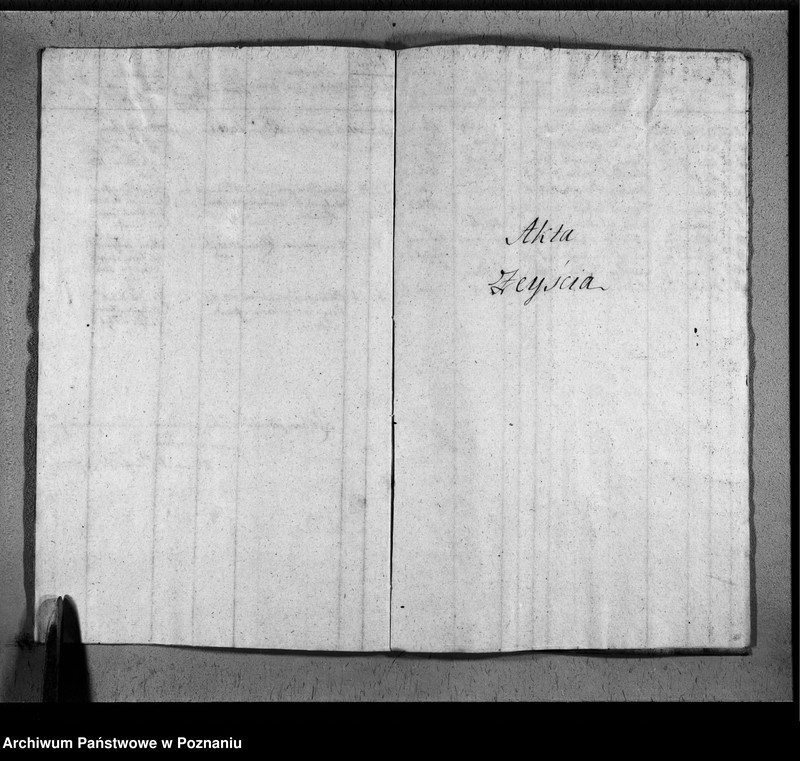 Akta
Zeyścia
Archiwum Państwowe w Poznaniu